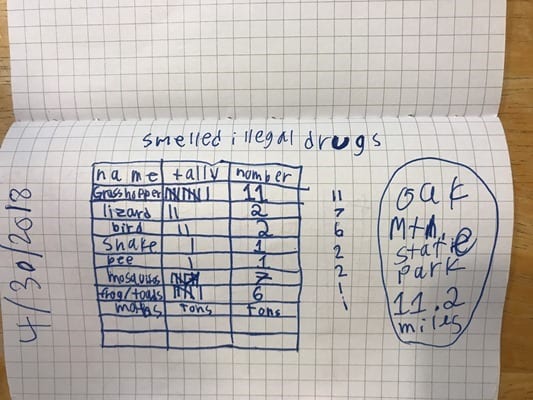 smelled illegal drugs
name tally number
Grasshopper 11
lizard 2
bird 2
Snake 1
bee 1
mosquitos 7
frog/toads 6
moths tons tons
11
7
6
2
2
1
1
oak
Mtn.
state
park
11.2
miles
4/30/2018